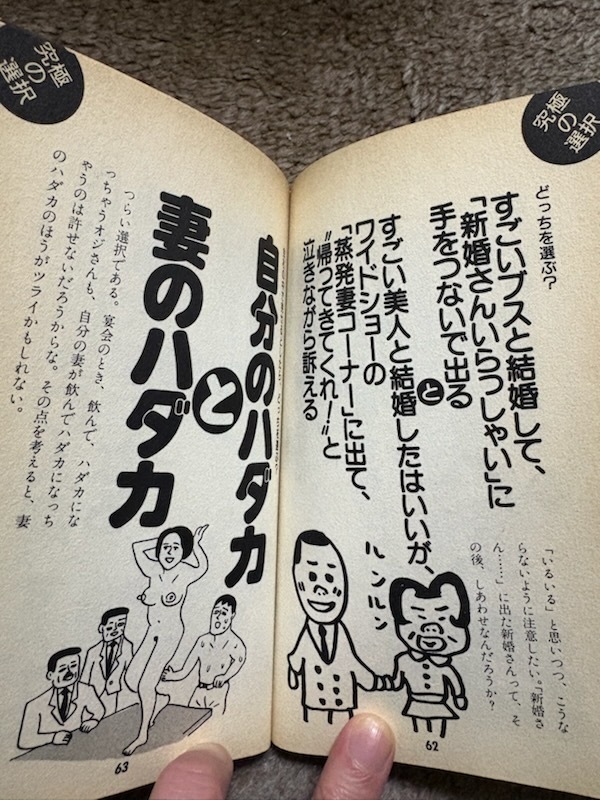 究極
の
選択
どっちを選ぶ?
すごいブスと結婚して、
「新婚さんいらっしゃい」に
手をつないで出る
と
すごい美人と結婚したはいいが、
ワイドショーの
「蒸発妻コーナー」に出て、
“帰ってきてくれ!”と
泣きながら訴える
「いるいる」と思いつつ、こうな
らないように注意したい。「新婚さ
ん……」に出た新婚さんって、そ
の後、しあわせなんだろうか?
ルンルン
62
究極
の
選択
自分のハダカ
と
妻のハダカ
つらい選択である。宴会のとき、飲んで、ハダカにな
っちゃうオジさんも、自分の妻が飲んでハダカになっち
ゃうのは許せないだろうからな。その点を考えると、妻
のハダカのほうがツライかもしれない。
63